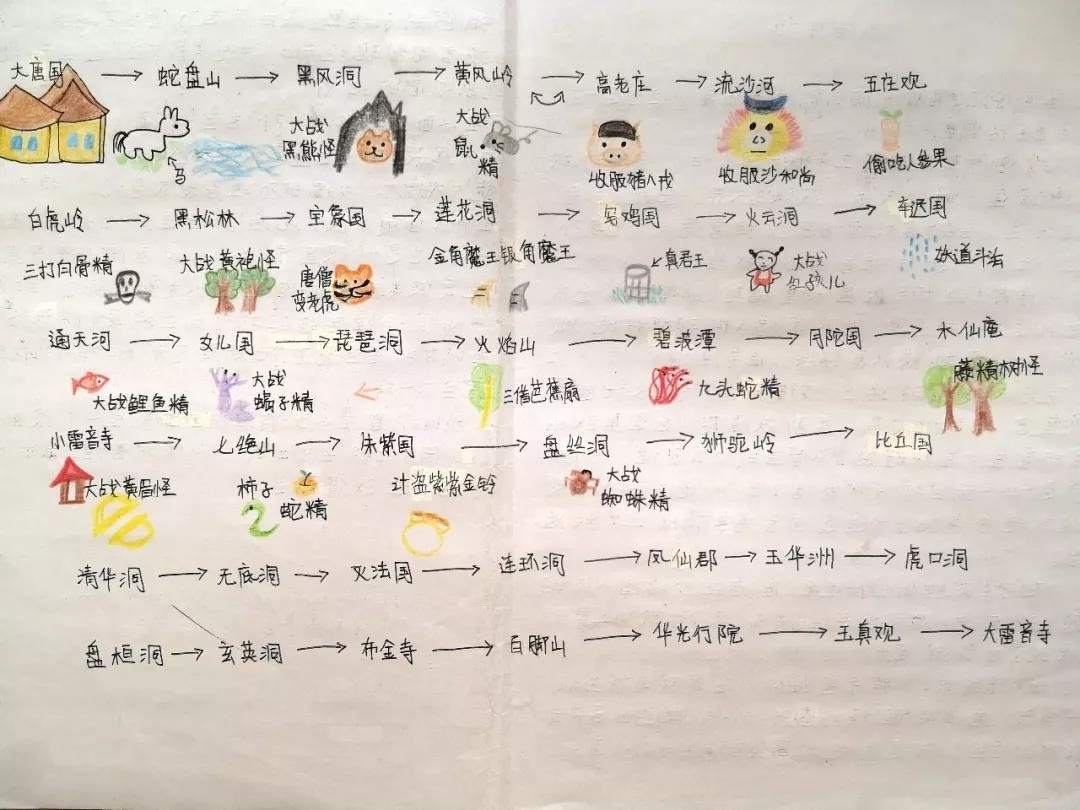 大唐国 → 蛇盘山 → 黑风洞 → 黄风岭 → 高老庄 → 流沙河 → 五庄观
马
大战
黑熊怪
大战
鼠
精
收服猪八戒
收服沙和尚
偷吃人参果
白虎岭 → 黑松林 → 宝象国 → 莲花洞 → 乌鸡国 → 火云洞 → 车迟国
三打白骨精
大战黄袍怪
唐僧
变老虎
金角魔王银角魔王
真君王
大战
红孩儿
妖道斗法
通天河 → 女儿国 → 琵琶洞 → 火焰山 → 碧波潭 → 月陀国 → 木仙庵
大战鲤鱼精
大战
蝎子精
三借芭蕉扇
九头蛇精
藤精树怪
小雷音寺 → 七绝山 → 朱紫国 → 盘丝洞 → 狮驼岭 → 比丘国
大战黄眉怪
柿子
蛇精
计盗紫紫金铃
大战
蜘蛛精
清华洞 → 无底洞 → 灭法国 → 连环洞 → 凤仙郡 → 玉华洲 → 虎口洞
盘桓洞 → 玄英洞 → 布金寺 → 百脚山 → 华光行院 → 玉真观 → 大雷音寺